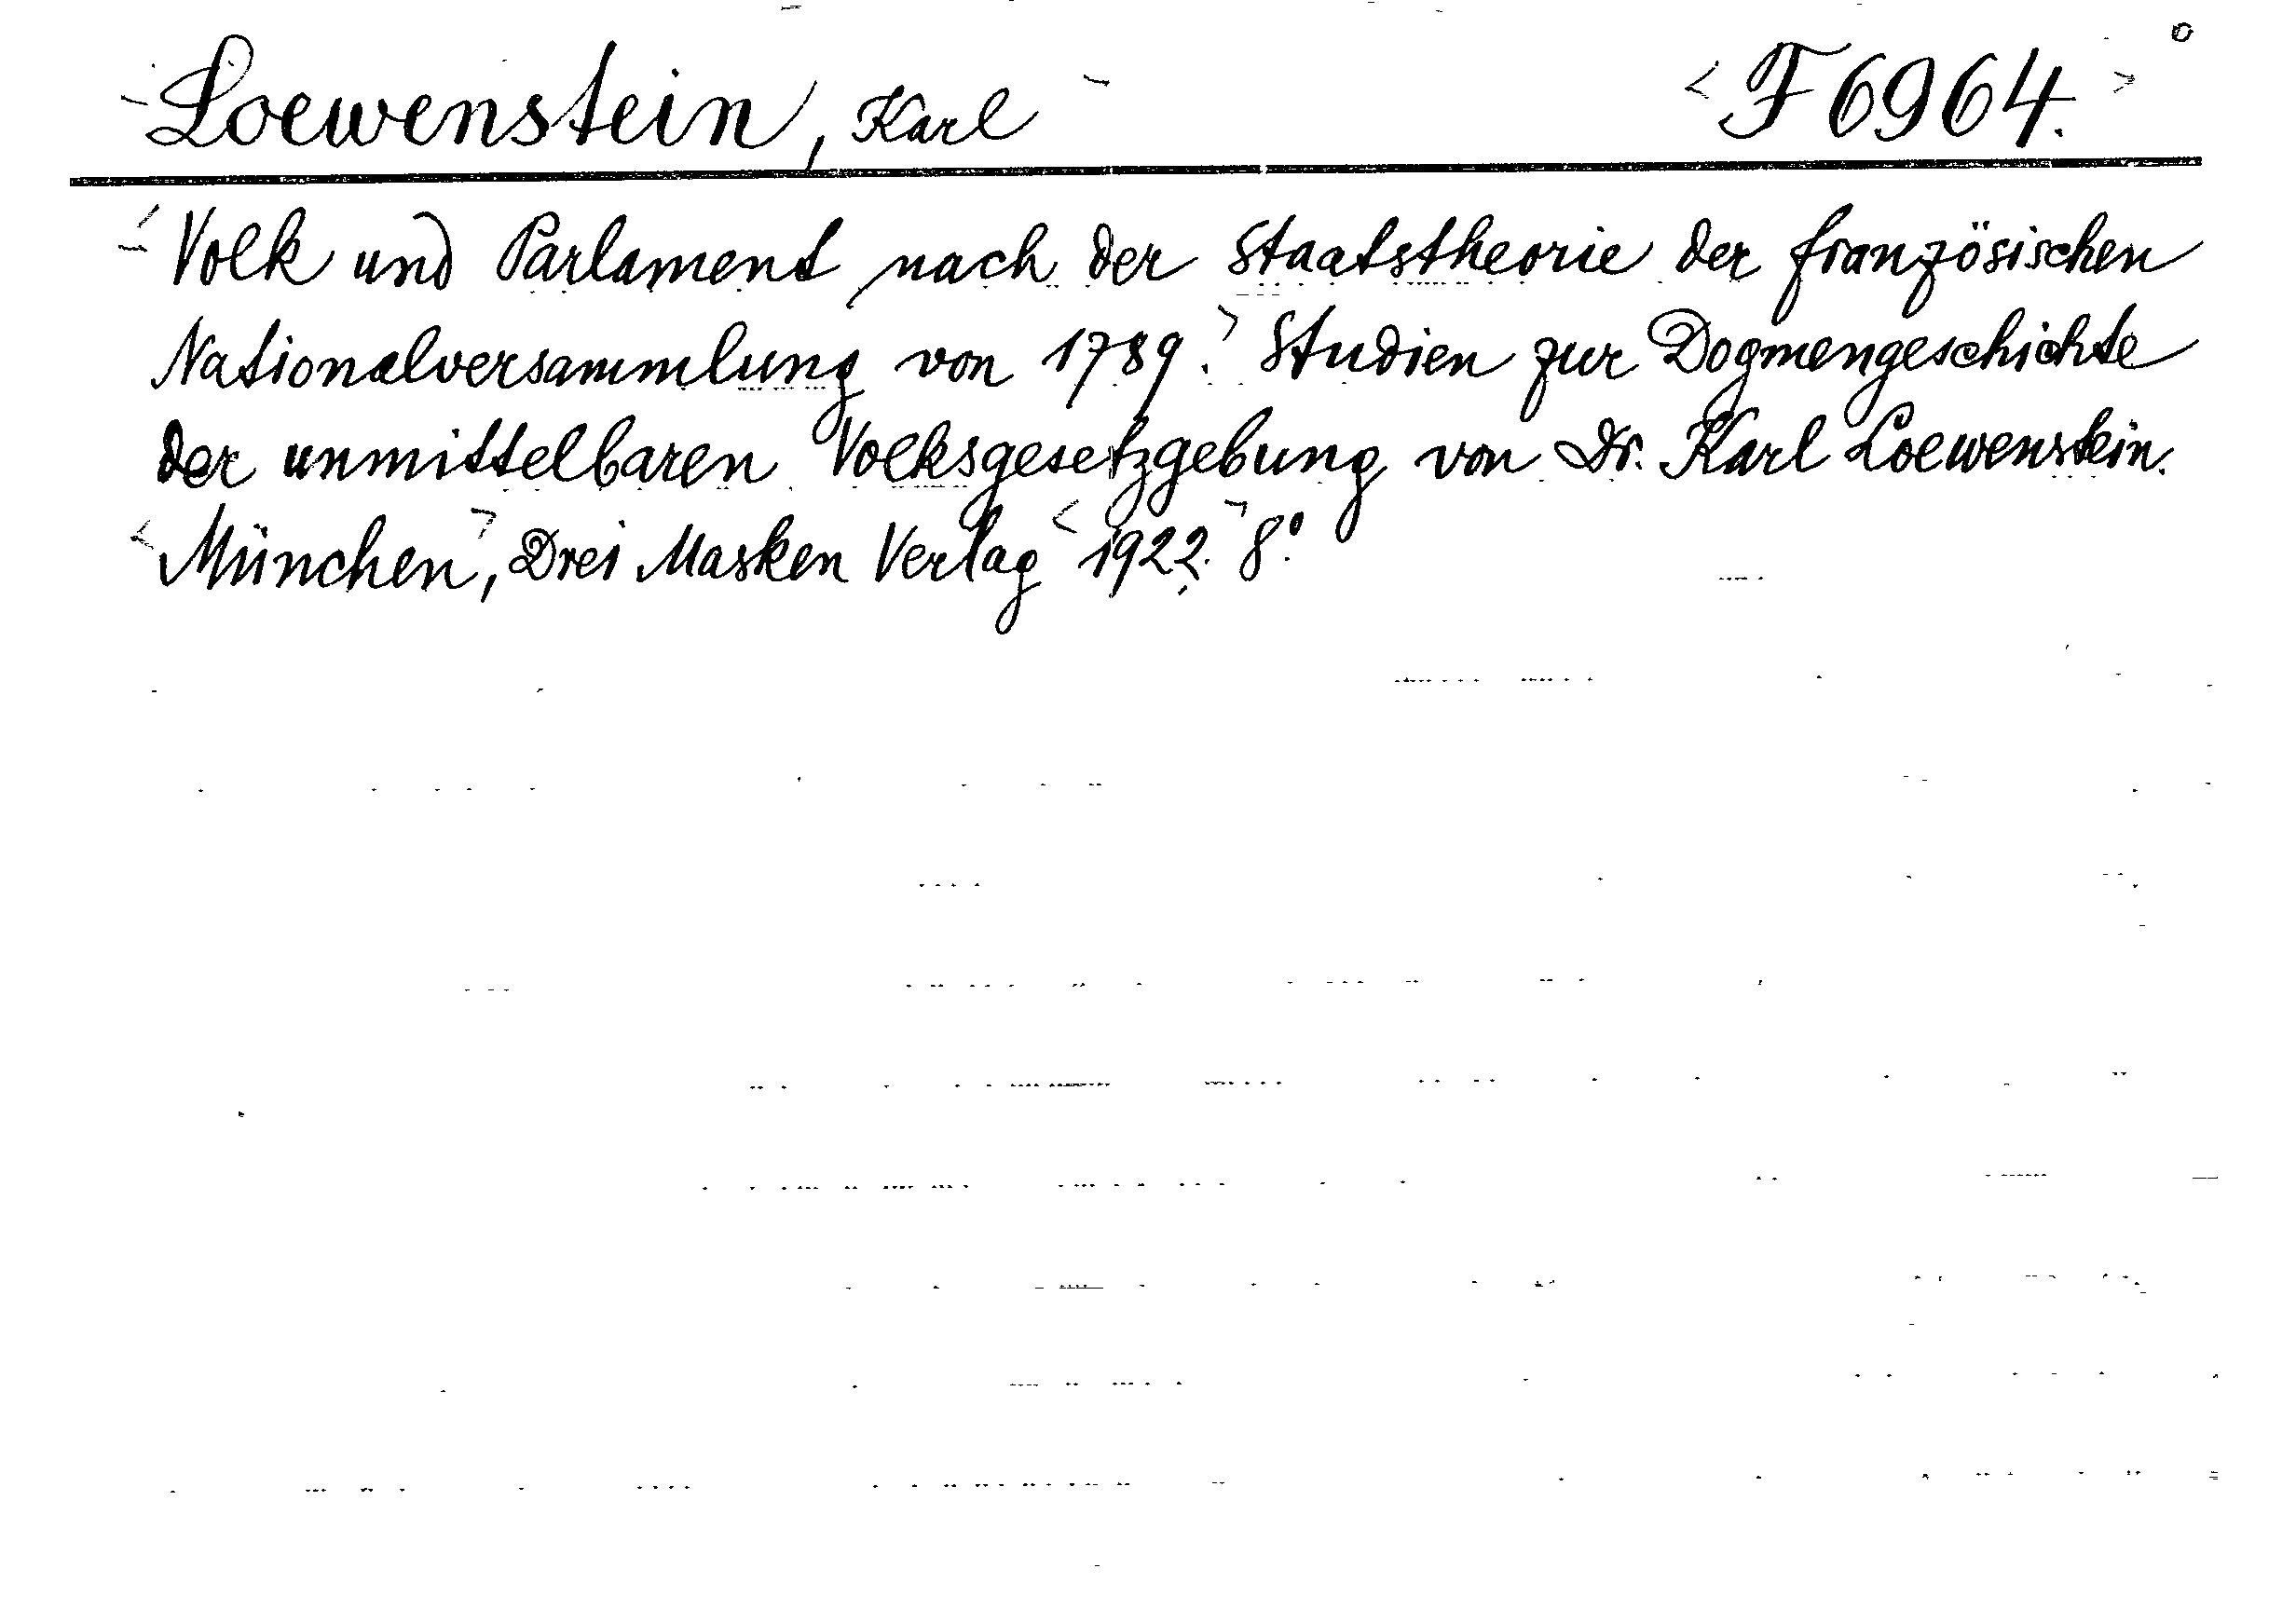 Loewenstein, Karl <F6964.>
Volk und Parlament nach der Staatstheorie der französischen
Nationalversammlung von 1789.> Studien zur Dogmengeschichte
der unmittelbaren Volksgesetzgebung von Dr. Karl Loewenstein.
<München>, Drei Masken Verlag <1922.> 8°.